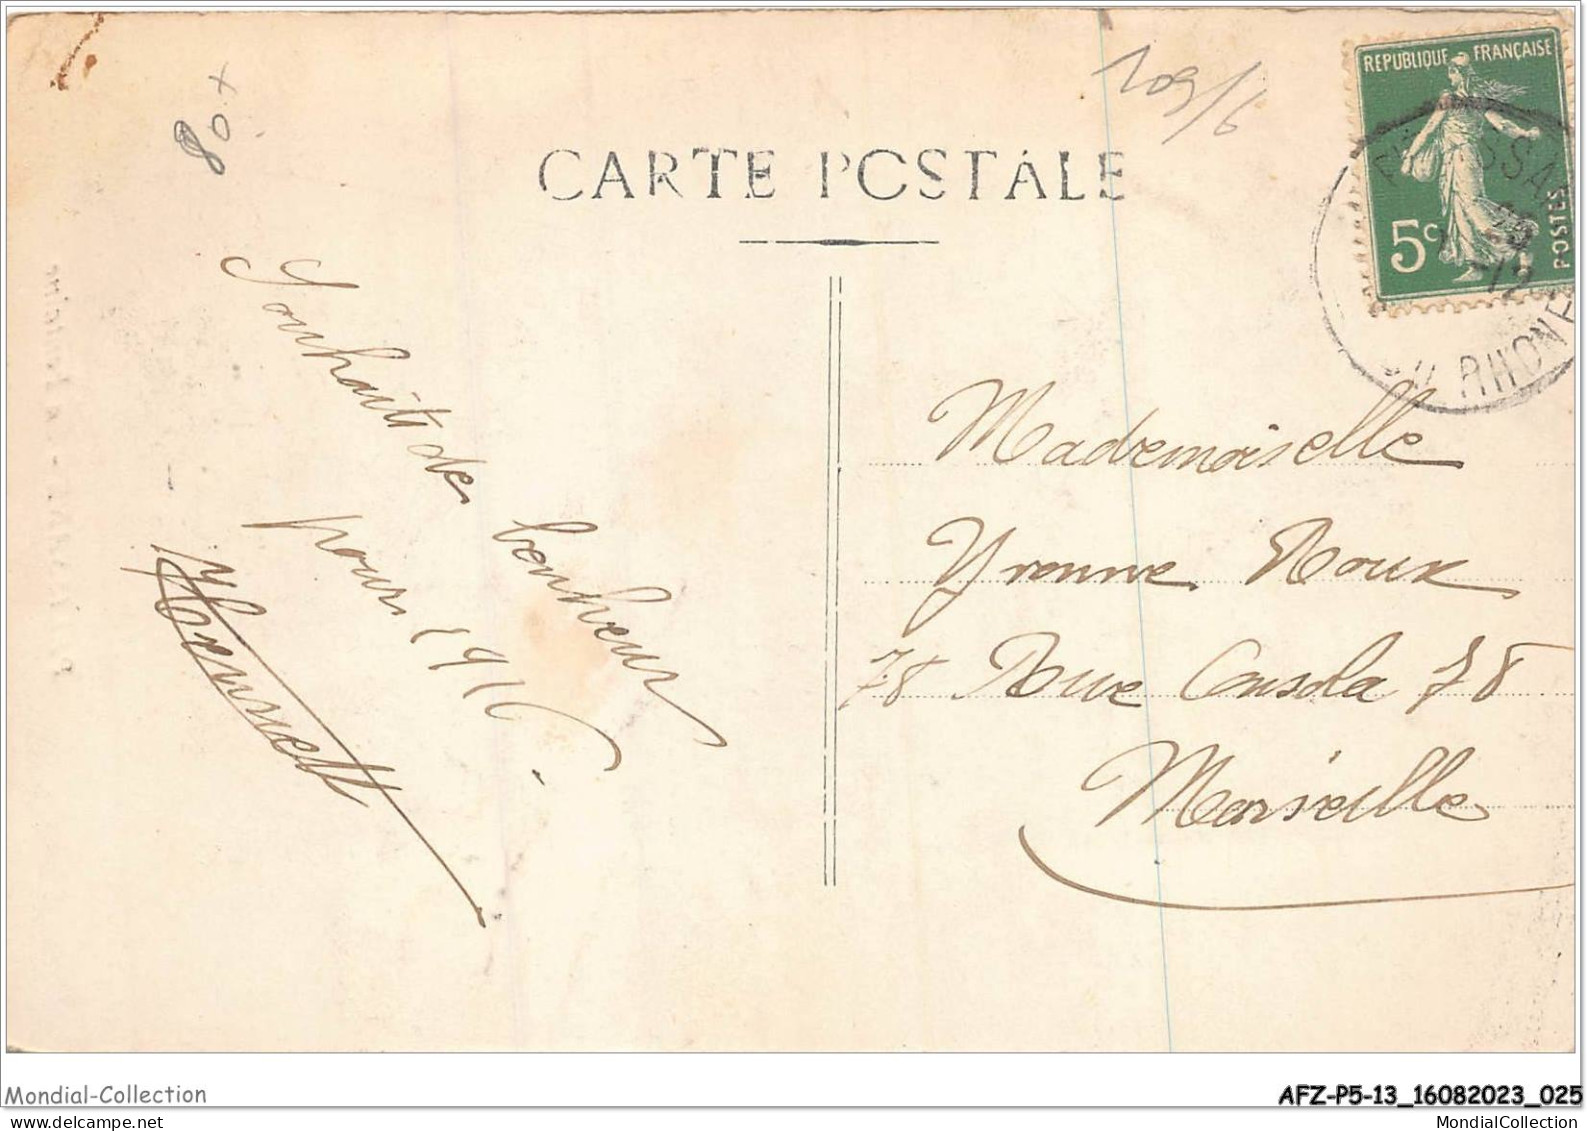 80+
109/6
CARTE POSTALE
REPUBLIQUE FRANÇAISE
5c
POSTES
-12
DU RHONE
Souhaits de bonheur
pour 1916
Mademoiselle
Yvonne Roux
78 Rue Consola 78
Marseille
Mondial-Collection
AFZ-P5-13_16082023_025
MondialCollection